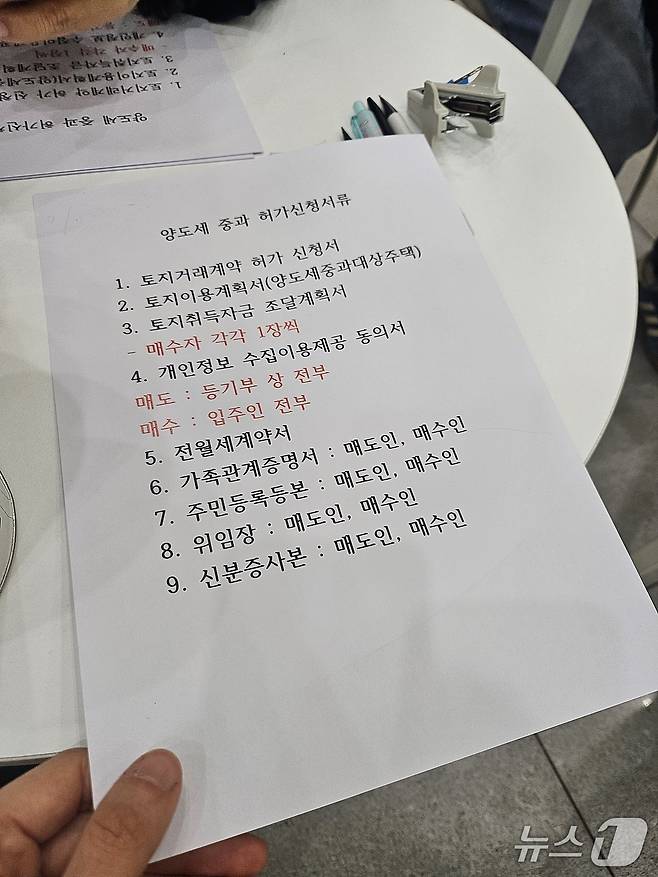 양도세 중과 허가신청서류
1. 토지거래계약 허가 신청서
2. 토지이용계획서(양도세중과대상주택)
3. 토지취득자금 조달계획서
- 매수자 각각 1장씩
4. 개인정보 수집이용제공 동의서
매도 : 등기부 상 전부
매수 : 입주인 전부
5. 전월세계약서
6. 가족관계증명서 : 매도인, 매수인
7. 주민등록등본 : 매도인, 매수인
8. 위임장 : 매도인, 매수인
9. 신분증사본 : 매도인, 매수인
뉴스1